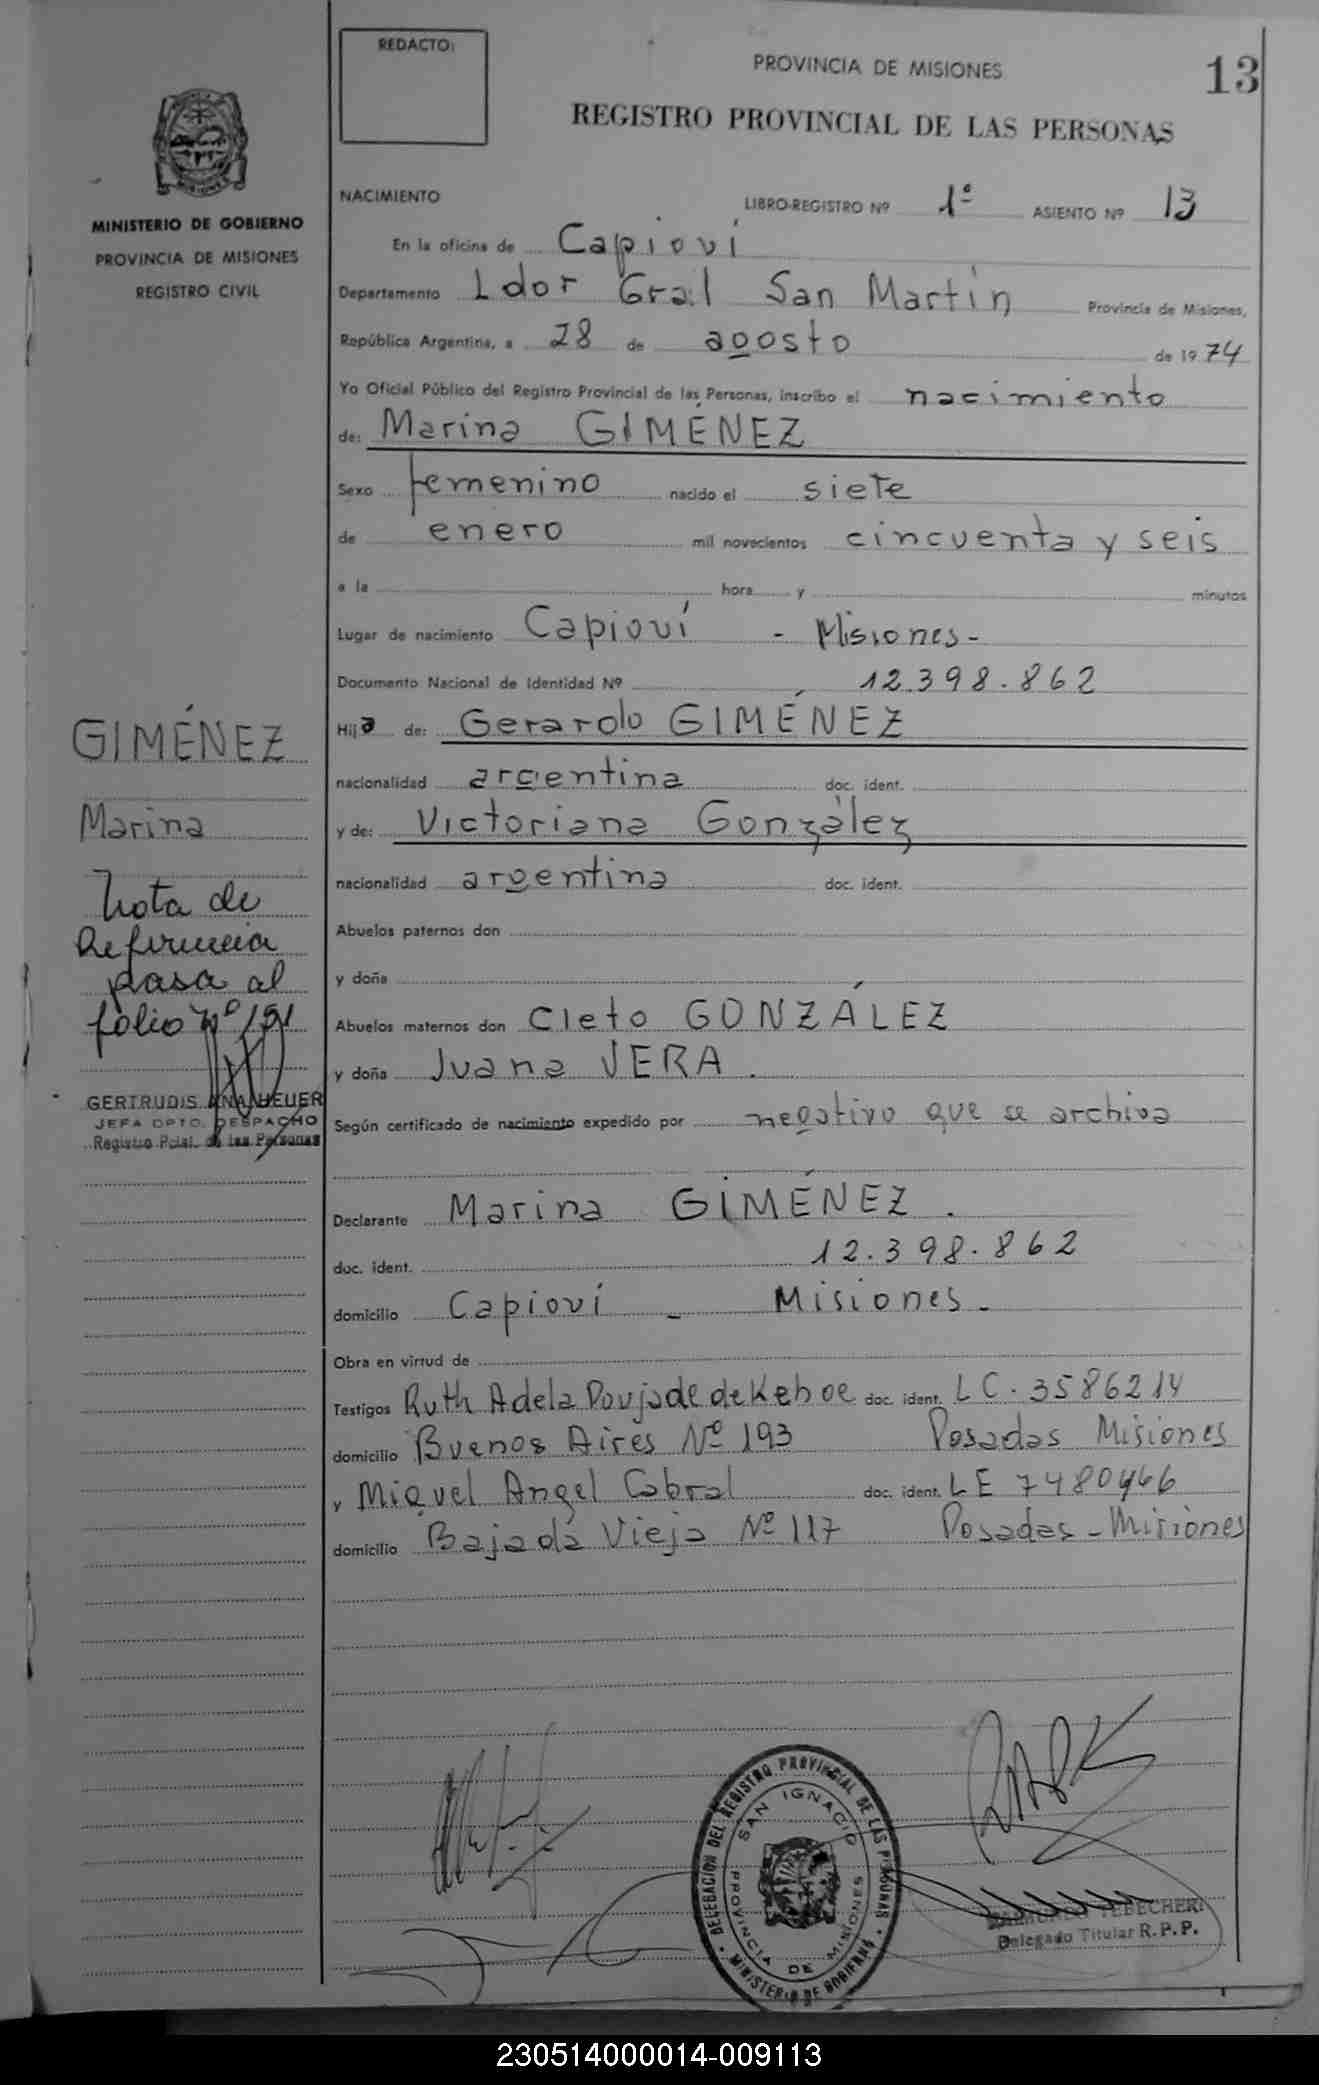 REDACTO:
PROVINCIA DE MISIONES
13
REGISTRO PROVINCIAL DE LAS PERSONAS
MINISTERIO DE GOBIERNO
PROVINCIA DE MISIONES
REGISTRO CIVIL
NACIMIENTO LIBRO-REGISTRO Nº 1º ASIENTO Nº 13
En la oficina de Capioví
Departamento Ldor Gral San Martín Provincia de Misiones,
República Argentina, a 28 de agosto de 1974
Yo Oficial Público del Registro Provincial de las Personas, inscribo el nacimiento
de: Marina GIMÉNEZ
Sexo femenino nacido el siete
de enero mil novecientos cincuenta y seis
a la hora y minutos
Lugar de nacimiento Capioví - Misiones-
Documento Nacional de Identidad Nº 12.398.862
Hija de: Gerardo GIMÉNEZ
nacionalidad argentina doc. ident.
y de: Victoriana González
nacionalidad argentina doc. ident.
Abuelos paternos don
y doña
Abuelos maternos don Cleto GONZÁLEZ
y doña Juana VERA.
Según certificado de nacimiento expedido por negativo que se archiva
Declarante Marina GIMÉNEZ.
doc. ident. 12.398.862
domicilio Capioví - Misiones.
Obra en virtud de
Testigos Ruth Adela Poujade de Kehoe doc. ident. LC. 3586214
domicilio Buenos Aires Nº 193 Posadas Misiones
y Miguel Angel Cabral doc. ident. LE
domicilio Bajada Vieja Nº 117 Posadas - Misiones
GIMÉNEZ
Marina
Nota de
Referencia
pasa al
folio Nº 191
GERTRUDIS ANA HEUER
JEFA DPTO. DESPACHO
Registro Pcial. de las Personas
DELEGACION DEL REGISTRO PROVINCIAL DE LAS PERSONAS
SAN IGNACIO
PROVINCIA DE MISIONES
MINISTERIO DE GOBIERNO
Delegado Titular R.P.P.
230514000014-009113